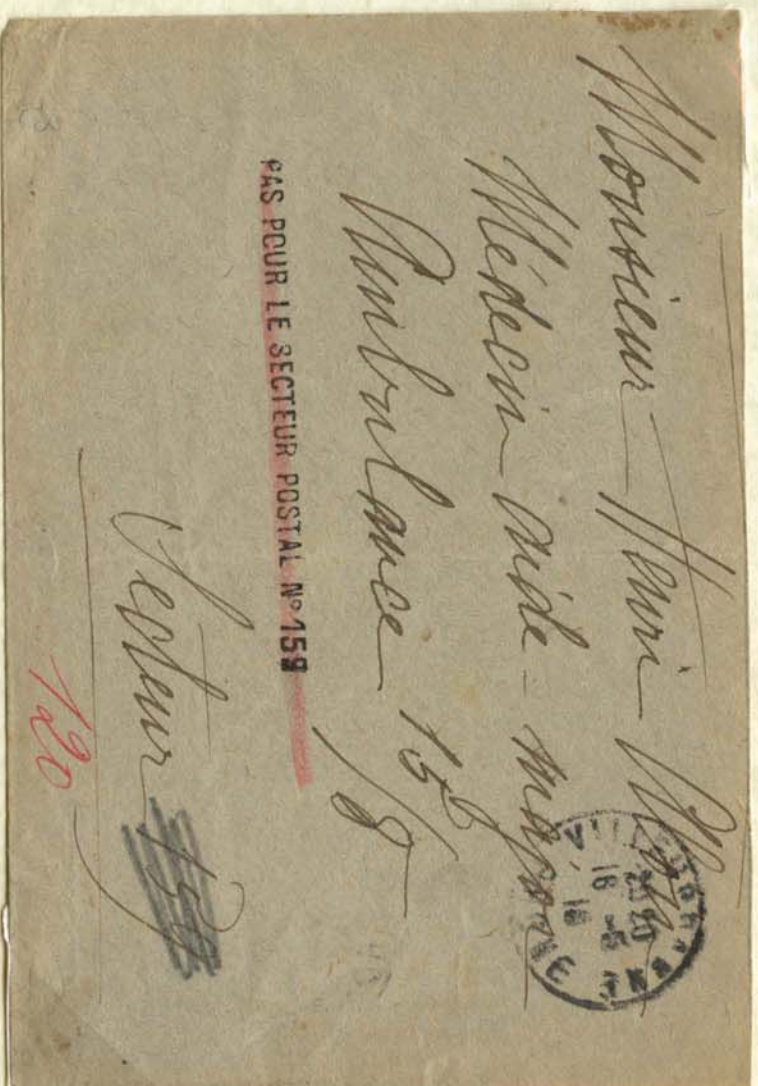 Monsieur Henri
Médecin aide-major
Ambulance 15/8
PAS POUR LE SECTEUR POSTAL Nº 159
Secteur 159
120
20 40
16 -5
16